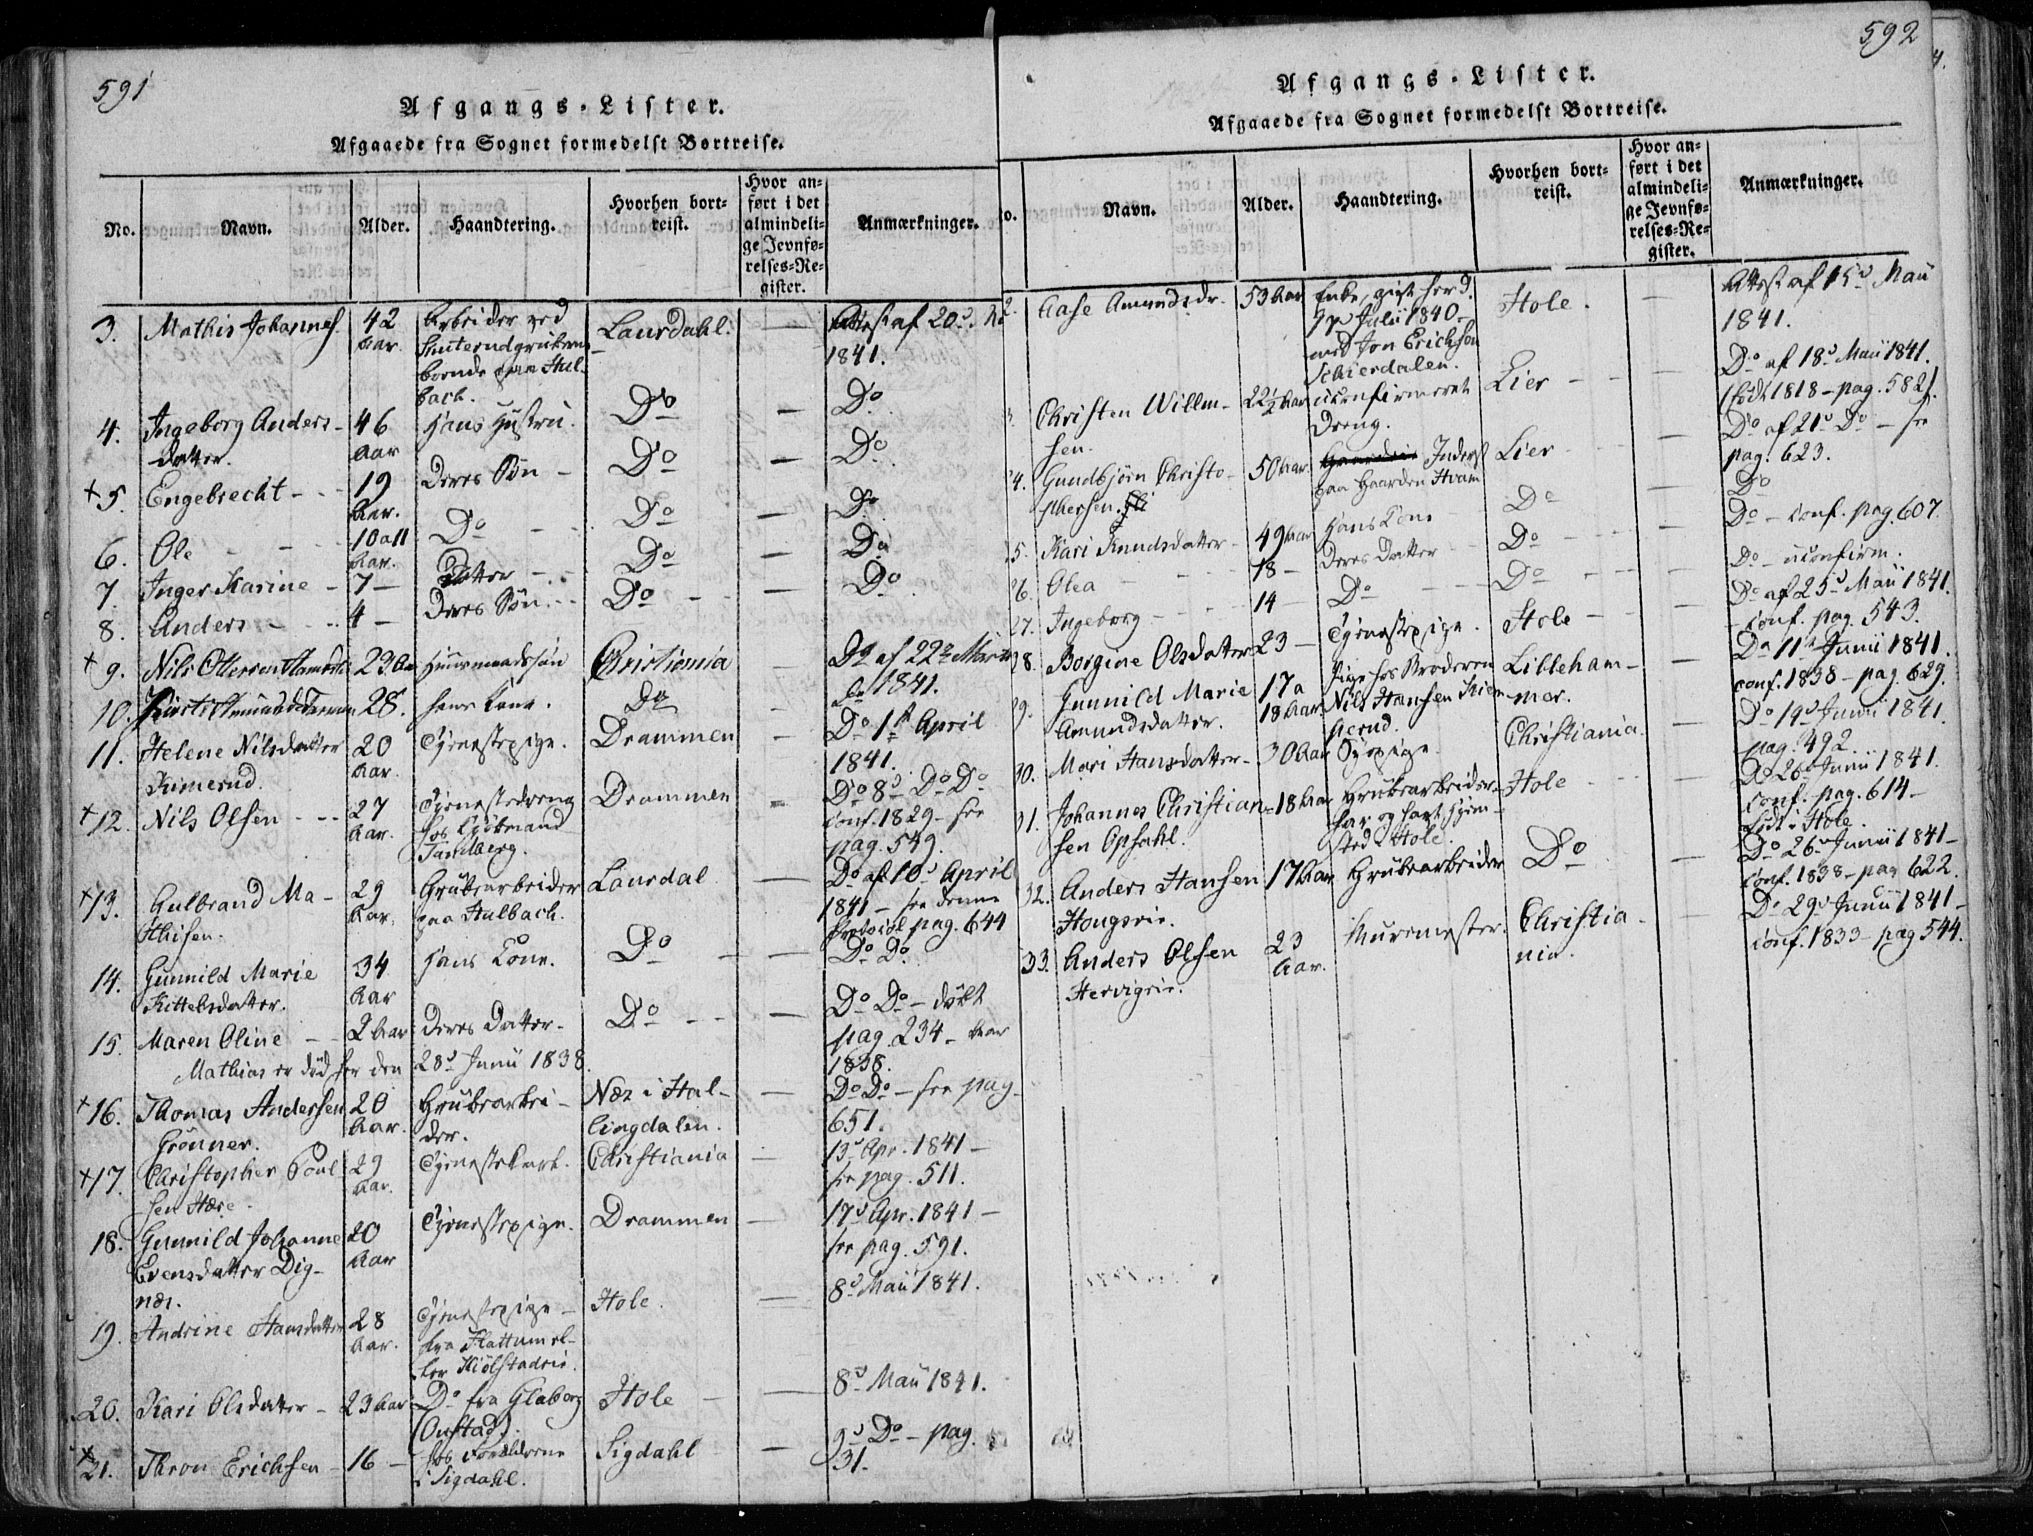 591
Afgangs-Lister.
Afgaaede fra Sognet formedelst Bortreise.
No. Navn. Alder. Haandtering. Hvorhen bortreist. Hvor anført i det almindelige Jevnførelses-Register. Anmærkninger.
3. Mathis Johannes. 42 Aar. Arbeider ved boende paa Hulbach. Laurdahl. — Attest af 20d. 1841.
4. Ingeborg Andersdatter. 46 Aar Hans Hustru. Do — Do
+5. Engebrecht 19 Aar. Deres Søn Do — Do
6. Ole 10 a 11 Aar. Do Do — Do
7. Inger Karine 7 — Datter Do — Do
8. Anders 4 — Deres Søn Do — Do
+9. Nils Ottersen 23 Aar Huusmandssøn Christiania — Do af 22d Marts 1841.
10. 28. hans Kone. Do — Do
11. Helene Nilsdatter Kimerud. 20 Aar. Tjenestepige. Drammen — Do 1st April 1841.
+12. Nils Olsen 27 Aar. Tjenestedreng hos Kjøbmand Tandberg. Drammen — Do 8d Do Do conf. 1829 – see pag. 549.
+13. Gulbrand Mathisen. 29 Aar. Grubearbeider paa Hulbach. Laurdal — Do af 10d April 1841 – see denne Protocol pag. 644
14. Gunnild Marie Kittelsdatter. 34 Aar Hans Kone. Do — Do Do
15. Maren Oline 2 Aar Deres Datter. Do — Do Do – døbt pag. 234 – Aar 1838.
Mathias er død her den 28d Junii 1838.
+16. Thomas Andersen Grønner. 20 Aar. Grubearbeider. Næs i Hallingdalen. — Do Do – see pag. 651.
+17. Christopher Poulsen Hære. 29 Aar. Tjenestekarl. Christiania — 13d Apr. 1841 – see pag. 511.
18. Gunnild Johanne Evensdatter Dignæs. 20 Aar Tjenestepige. Drammen — 17d Apr. 1841 – see pag. 591.
19. Andrine Hansdatter 28 Aar. Tjenestepige – fra Flattum eller Kiølstadeie. Hole. — 8d Maii 1841.
20. Kari Olsdatter 23 Aar Do fra Glaborg (Onstad). Hole — 8d Maii 1841.
+21. Thron Erichsen 16 — hos Forældrene i Sigdahl. Sigdahl — 9d Do – pag. 31.
592
Afgangs-Lister.
Afgaaede fra Sognet formedelst Bortreise.
o. Navn. Alder. Haandtering. Hvorhen bortreist. Hvor anført i det almindelige Jevnførelses-Register. Anmærkninger.
2. Aase Amundsdr. 53 Aar Enke, gift her d. Julii 1840 – med Jon Erichsen Schierdalen. Hole. — Attest af 15d Maii 1841.
3. Christen Willumsen. 22½ Aar uconfirmeret Dreng. Lier — Do af 18d Maii 1841. (født 1818 – pag. 582).
24. Gundbjørn Christophersen. 50 Aar. Inderst paa Gaarden Hvam Lier — Do af 21d Do – see pag. 623.
25. Kari Knudsdatter 49 Aar Hans Kone Do — Do
26. Olea 18 — Deres Datter Do — Do – conf. pag. 607.
27. Ingeborg 14 — Do Do — Do – uconfirm.
28. Borgine Olsdatter 23 — Tjenestepige. Hole — Do af 25d Maii 1841. – conf. pag. 543.
29. Gunnild Marie Amundsdatter. 17 a 18 Aar. Pige hos Broderen Nils Hansen Kiemperud. Lilleham-mer. — Do 11te Junii 1841. conf. 1838 – pag. 629.
30. Mari Hansdatter 30 Aar Sypige. Christiania. — Do 19d Junii 1841. pag. 492.
31. Johannes Christiansen Opsahl. 18 Aar Grubearbeider – har og havt Hjemsted i Hole. Hole — Do 26d Junii 1841. conf. pag. 614 – født i Hole.
32. Anders Hansen Hougseie. 17 Aar Grubearbeider Do — Do 26d Junii 1841 – conf. 1838 – pag. 622.
33. Anders Olsen Hervigeie. 23 Aar. Muremester. Christiania. — Do 29d Junii 1841 – conf. 1833 – pag 544.